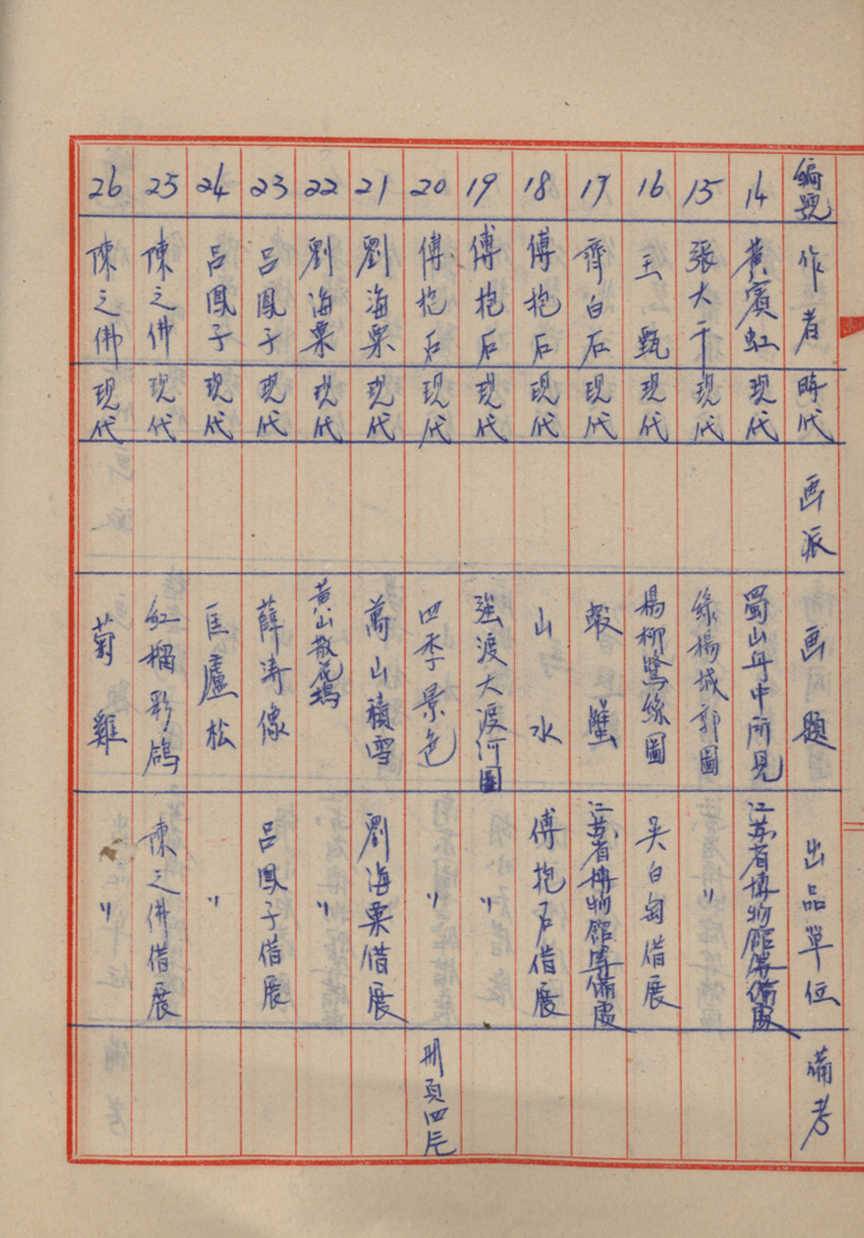 編號 作者 時代 画派 画題 出品單位 備考
14 黄賓虹 現代 蜀山舟中所見 江苏省博物館籌備處
15 張大千 現代 綠楊城郭圖 〃
16 王甄 現代 楊柳鷺絲圖 吴白匋借展
17 齊白石 現代 蝦蟹 江苏省博物館籌備處
18 傅抱石 現代 山水 傅抱石借展
19 傅抱石 現代 強渡大渡河圖 〃
20 傅抱石 現代 四季景色 〃 册頁四尺
21 劉海粟 現代 萬山積雪 劉海粟借展
22 劉海粟 現代 黄山散花塢 〃
23 呂鳳子 現代 薛涛像 呂鳳子借展
24 呂鳳子 現代 匡廬松 〃
25 陳之佛 現代 紅榴彩鴿 陳之佛借展
26 陳之佛 現代 菊雞 〃